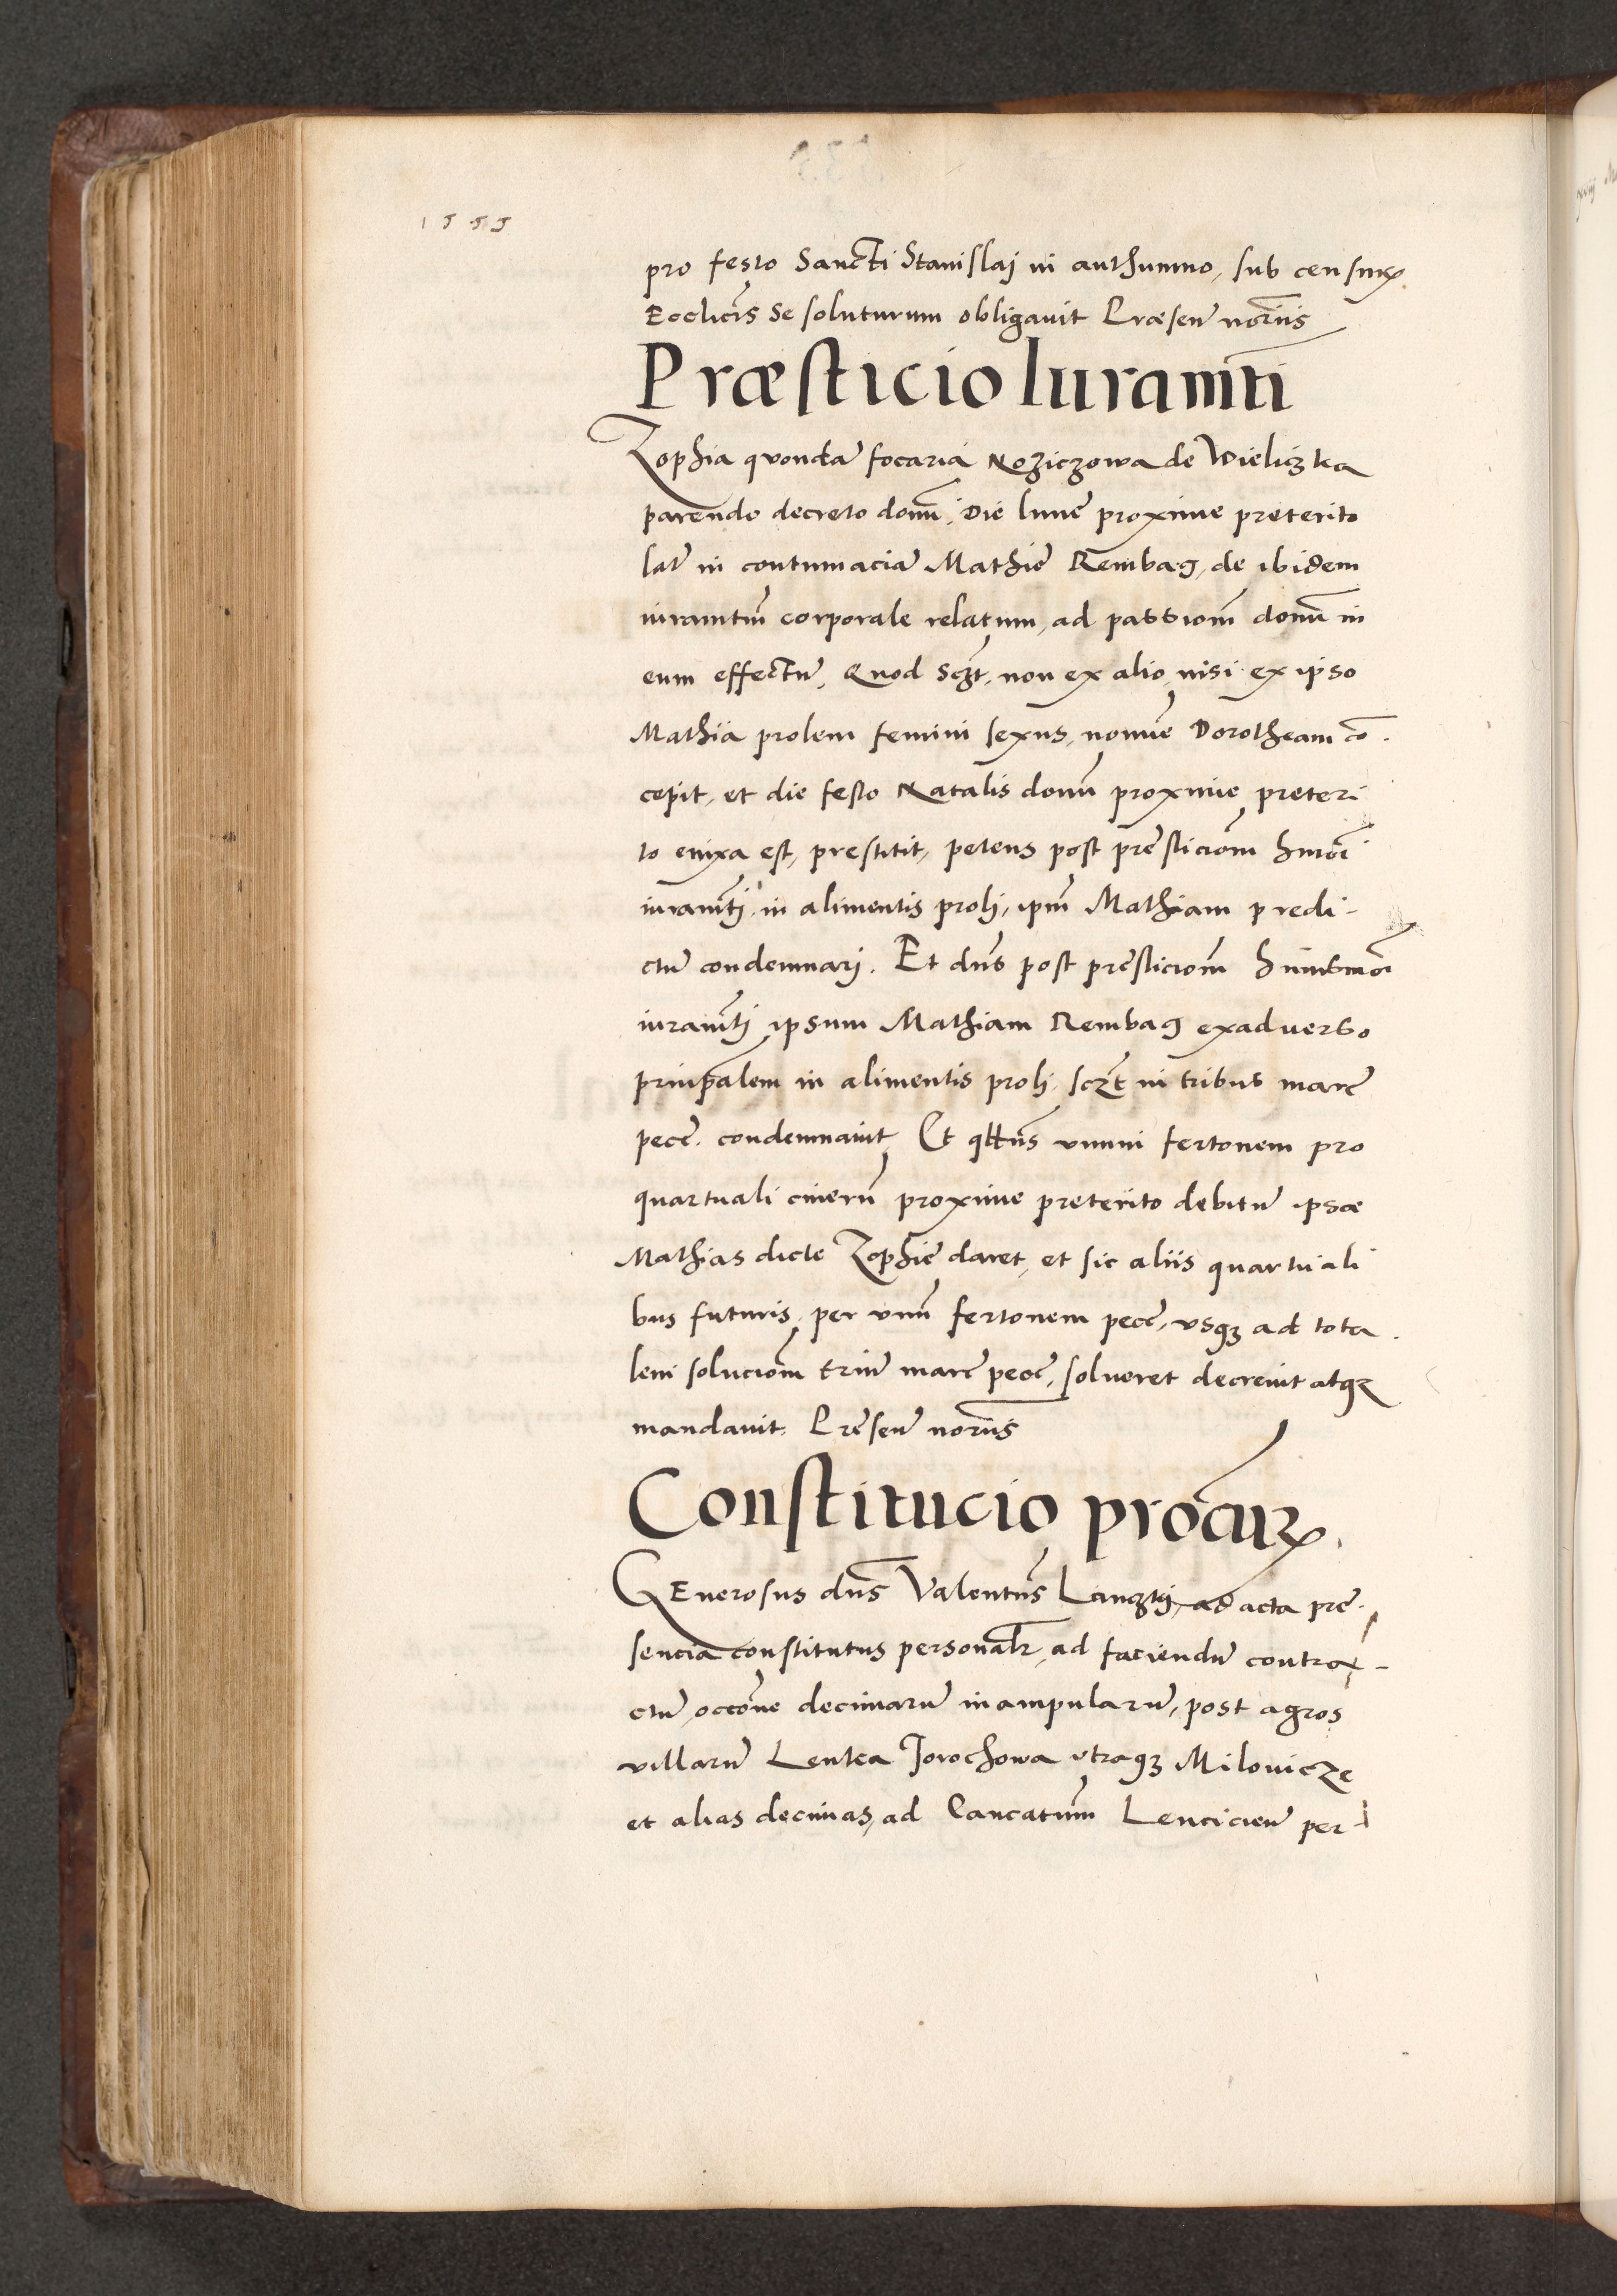 1555
pro festo Sancti Stanislaj in authumno, sub censur
Ecclicis se soluturum obligauit Præsen noriis
Præsticio Iuramti
Zophia quonda focaria Noziczowa de Wieliczka
parendo decreto domi, Die lune proxime preterito
lat in contumacia Mathie Rembag, de ibidem
iuramtm corporale relatum, ad passiom domi in
eum effectu, Quod sczt, non ex alio, nisi ex ipso
Mathia prolem femini sexus, nomine Dorotheam co
cepit, et die festo Natalis domi proxime preteri
to enixa est, prestitit, petens post presticiom hmoi
iuramti, in alimentis proli, ipm Mathiam predi-
ctu condemnari. Et dns post presticiom huiusmoi
iuramti ipsum Mathiam Rembag exaduerso
prinpalem in alimentis proli, sczt in tribus marc
pecc. condemnauit Et qttns vnum fertonem pro
quartuali cineru proxime preterito debitu ipse
Mathias dicte Zophie daret, et sic aliis quartuali
bus futuris, per vnu fertonem pecc, vsq3 ad tota
lem soluciom triu marc pecc, solueret decreuit atq3
mandauit. Presen noriis
Constitucio procur
Generosus dns Valentns ad acta pre
sencia constitutus personalr, ad faciendu contra-
ctu, occone decimaru manipularu, post agros
villaru Lenka Jorochowa vtraq3 Milouicze
et alias decimas, ad Cancatum Lencicien per